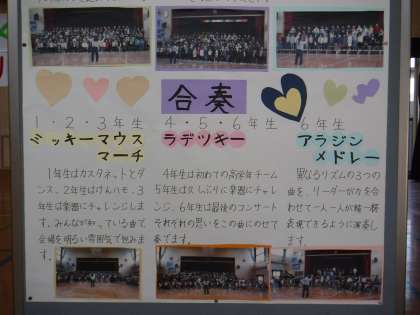 合奏
1・2・3年生
ミッキーマウス
マーチ
1年生はカスタネットとダ
ンス、2年生はけんハモ、3
年生は楽器にチャレンジしま
す。みんなが知っている曲で
会場を明るい雰囲気で包みま
す。
4・5・6年生
ラデツキー
4年生は初めての高学年チーム
5年生は久しぶりに楽器にチャレ
ンジ、6年生は最後のコンサート
それぞれの思いをこの曲にのせて
奏でます。
6年生
アラジン
メドレー
異なるリズムの3つの
曲を、リーダーが力を合
わせて一人一人が精一杯
表現できるように演奏し
ます。